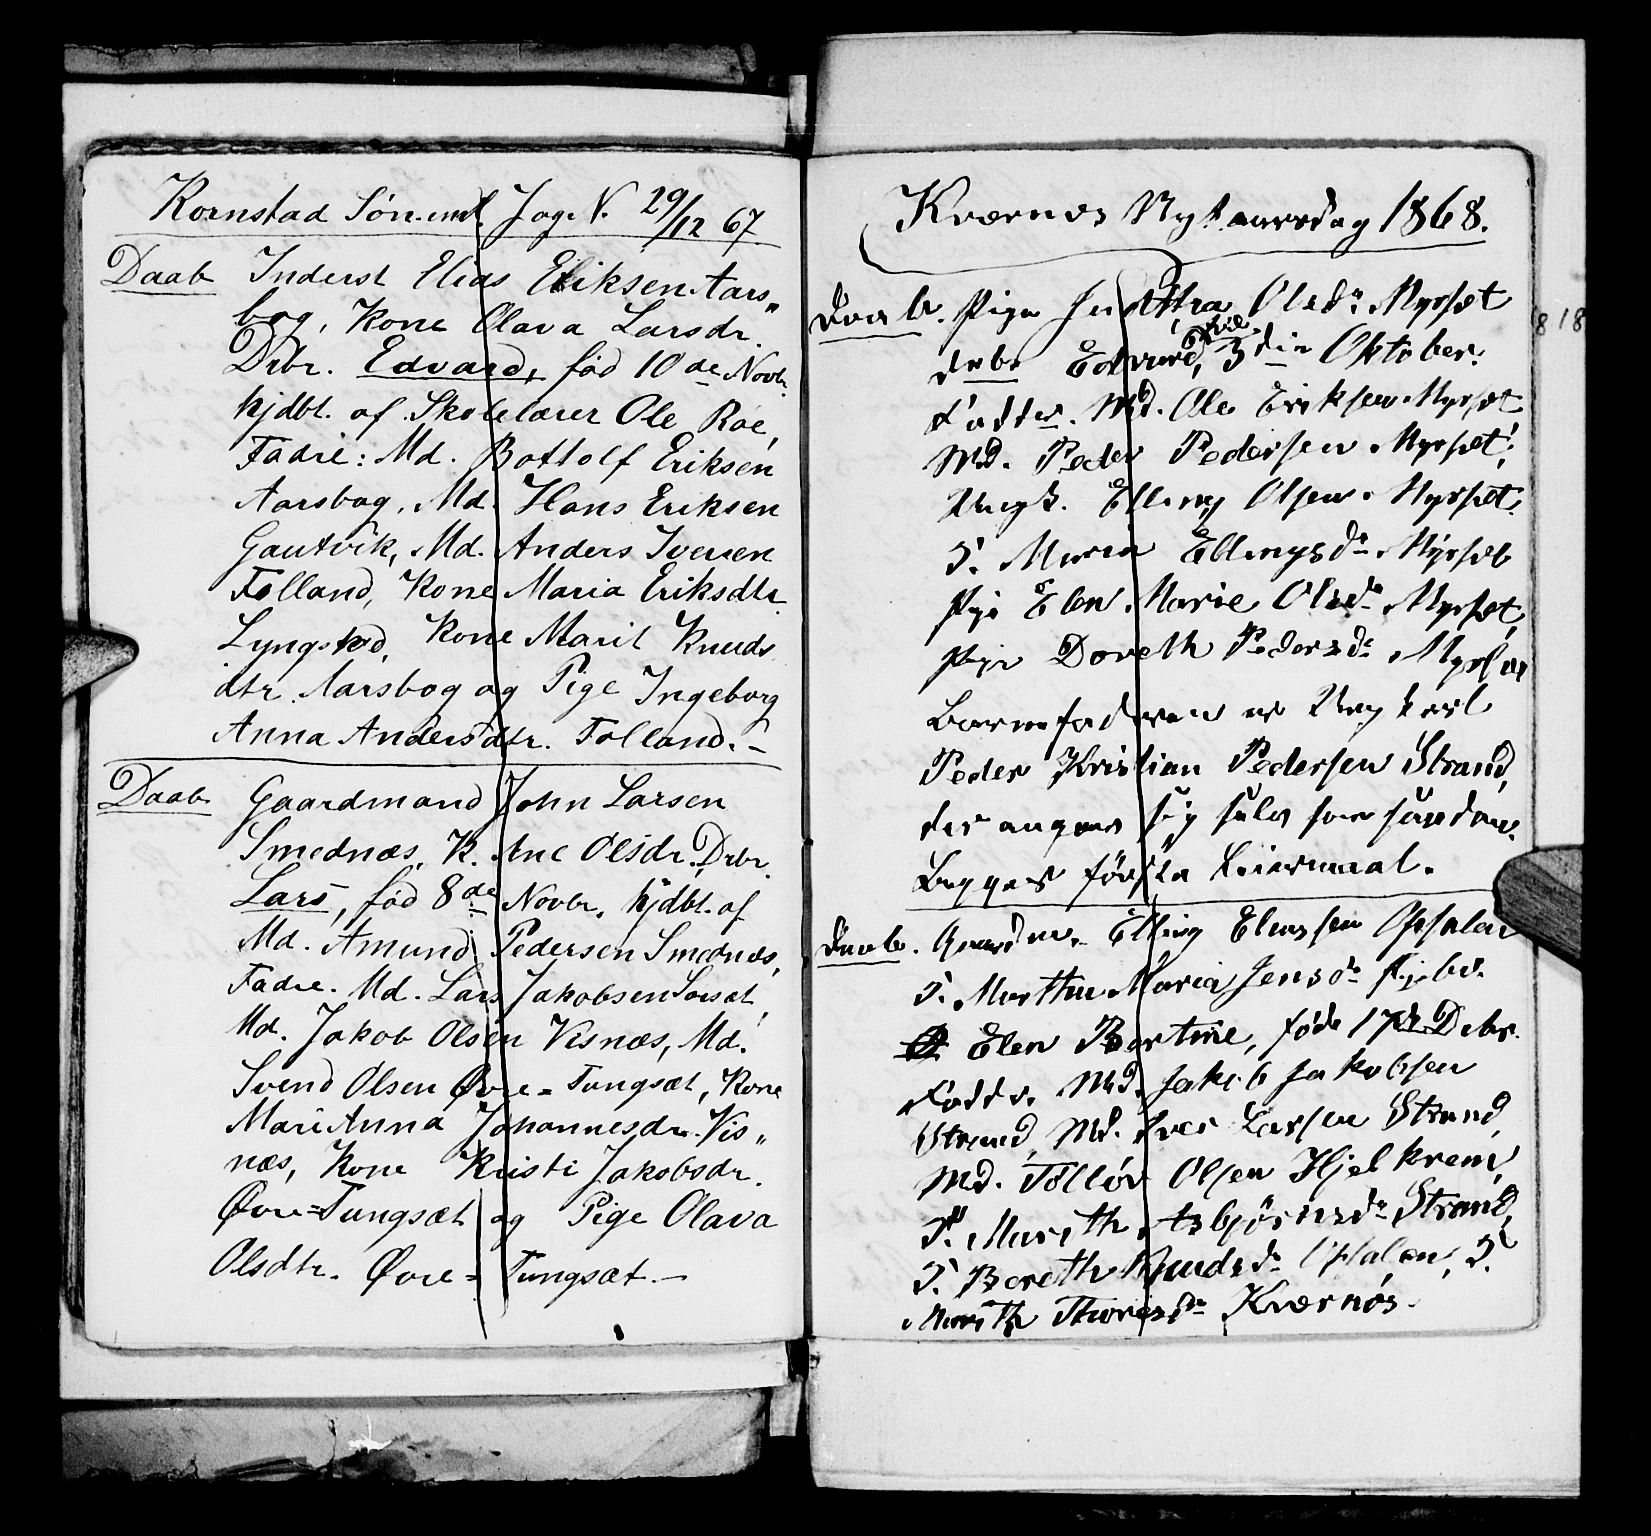 Kornstad Søn. eml. Jog. N. 29/12 67
Daab Inderst Elias Eriksen Aars„
bog, Kone Olava Larsdr.
Drbr. Edvard, fød 10de Novbr.
hjdbt. af Skolelærer Ole Roe,
Fadre: Md. Bottolf Eriksen
Aarsbog, Md. Hans Eriksen
Gautvik, Md. Anders Iversen
Folland, Kone Maria Eriksdtr.
Lyngstad, Kone Marit Knuds
dtr. Aarsbog og Pige Ingeborg
Anna Andersdtr. Folland. –
Daab Gaardmand John Larsen
Smednæs, K. Ane Olsdr. Drbr.
Lars, fød 8de Novbr. hjdbt. af
Md. Amund Pedersen Smednæs,
Fadre. Md. Lars Jakobsen Sorsæt,
Md. Jakob Olsen Visnæs, Md.
Svend Olsen Øvre=Tungsæt, Kone
Mari Anna Johannesdr. Vis„
næs, Kone Kristi Jakobsdr.
Øvre=Tungsæt og Pige Olava
Olsdtr. Øvre=Tungsæt. –
Kværnes Nytaarsdag 1868.
Daab. Pige Olsdr. Myrset
drbr. Edvard, 3die Oktober.
Faddr. Md. Ole Eriksen Myrset
Md. Peder Pedersen Myrset,
Ungk. Elling Olsen Myrset
K. Maria Ellingsdr. Myrset
Pige Elen Marie Olsdr. Myrset,
Pige Doreth Pedersdr. Myrset
Barnefaderen er Ungkarl
Peder Kristian Pedersen Strand,
der angav sig selv som saadan.
Begges første Leiermaal.
Daab. Gaardm. Elling Eliassen Opsalen
K. Martha Maria Jensdr. Pigebr.
Elen Bertine, føde 17de Debr.
Faddr. Md. Jakob Jakobsen
Strand, Md. Iver Larsen Strand,
Md. Tolløv Olsen Hjelkrem,
K. Marith Asbjørnsdr. Strand,
K. Bereth Knudsdr. Opsalen, K.
Marith Thoresdr. Kværnes.
8 18